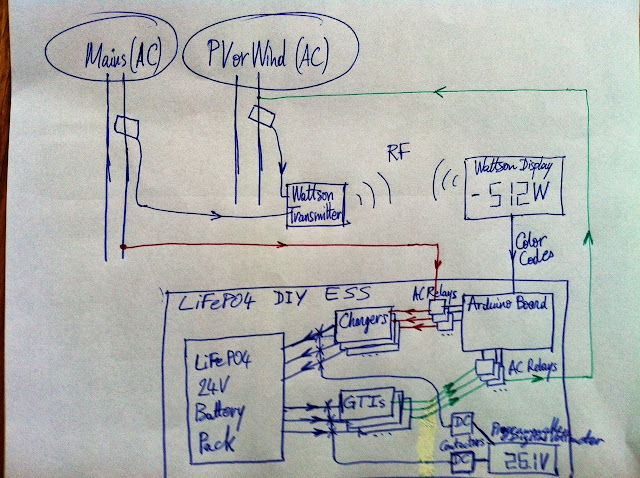 Mains (AC)
PV or Wind (AC)
RF
Wattson
Transmitter
Wattson Display
-512W
Color
Codes
LiFePO4 DIY ESS
AC Relays
Chargers
Arduino Board
LiFePO4
24V
Battery
Pack
AC Relays
GTIs
DC
Contactors
DC
26.1V